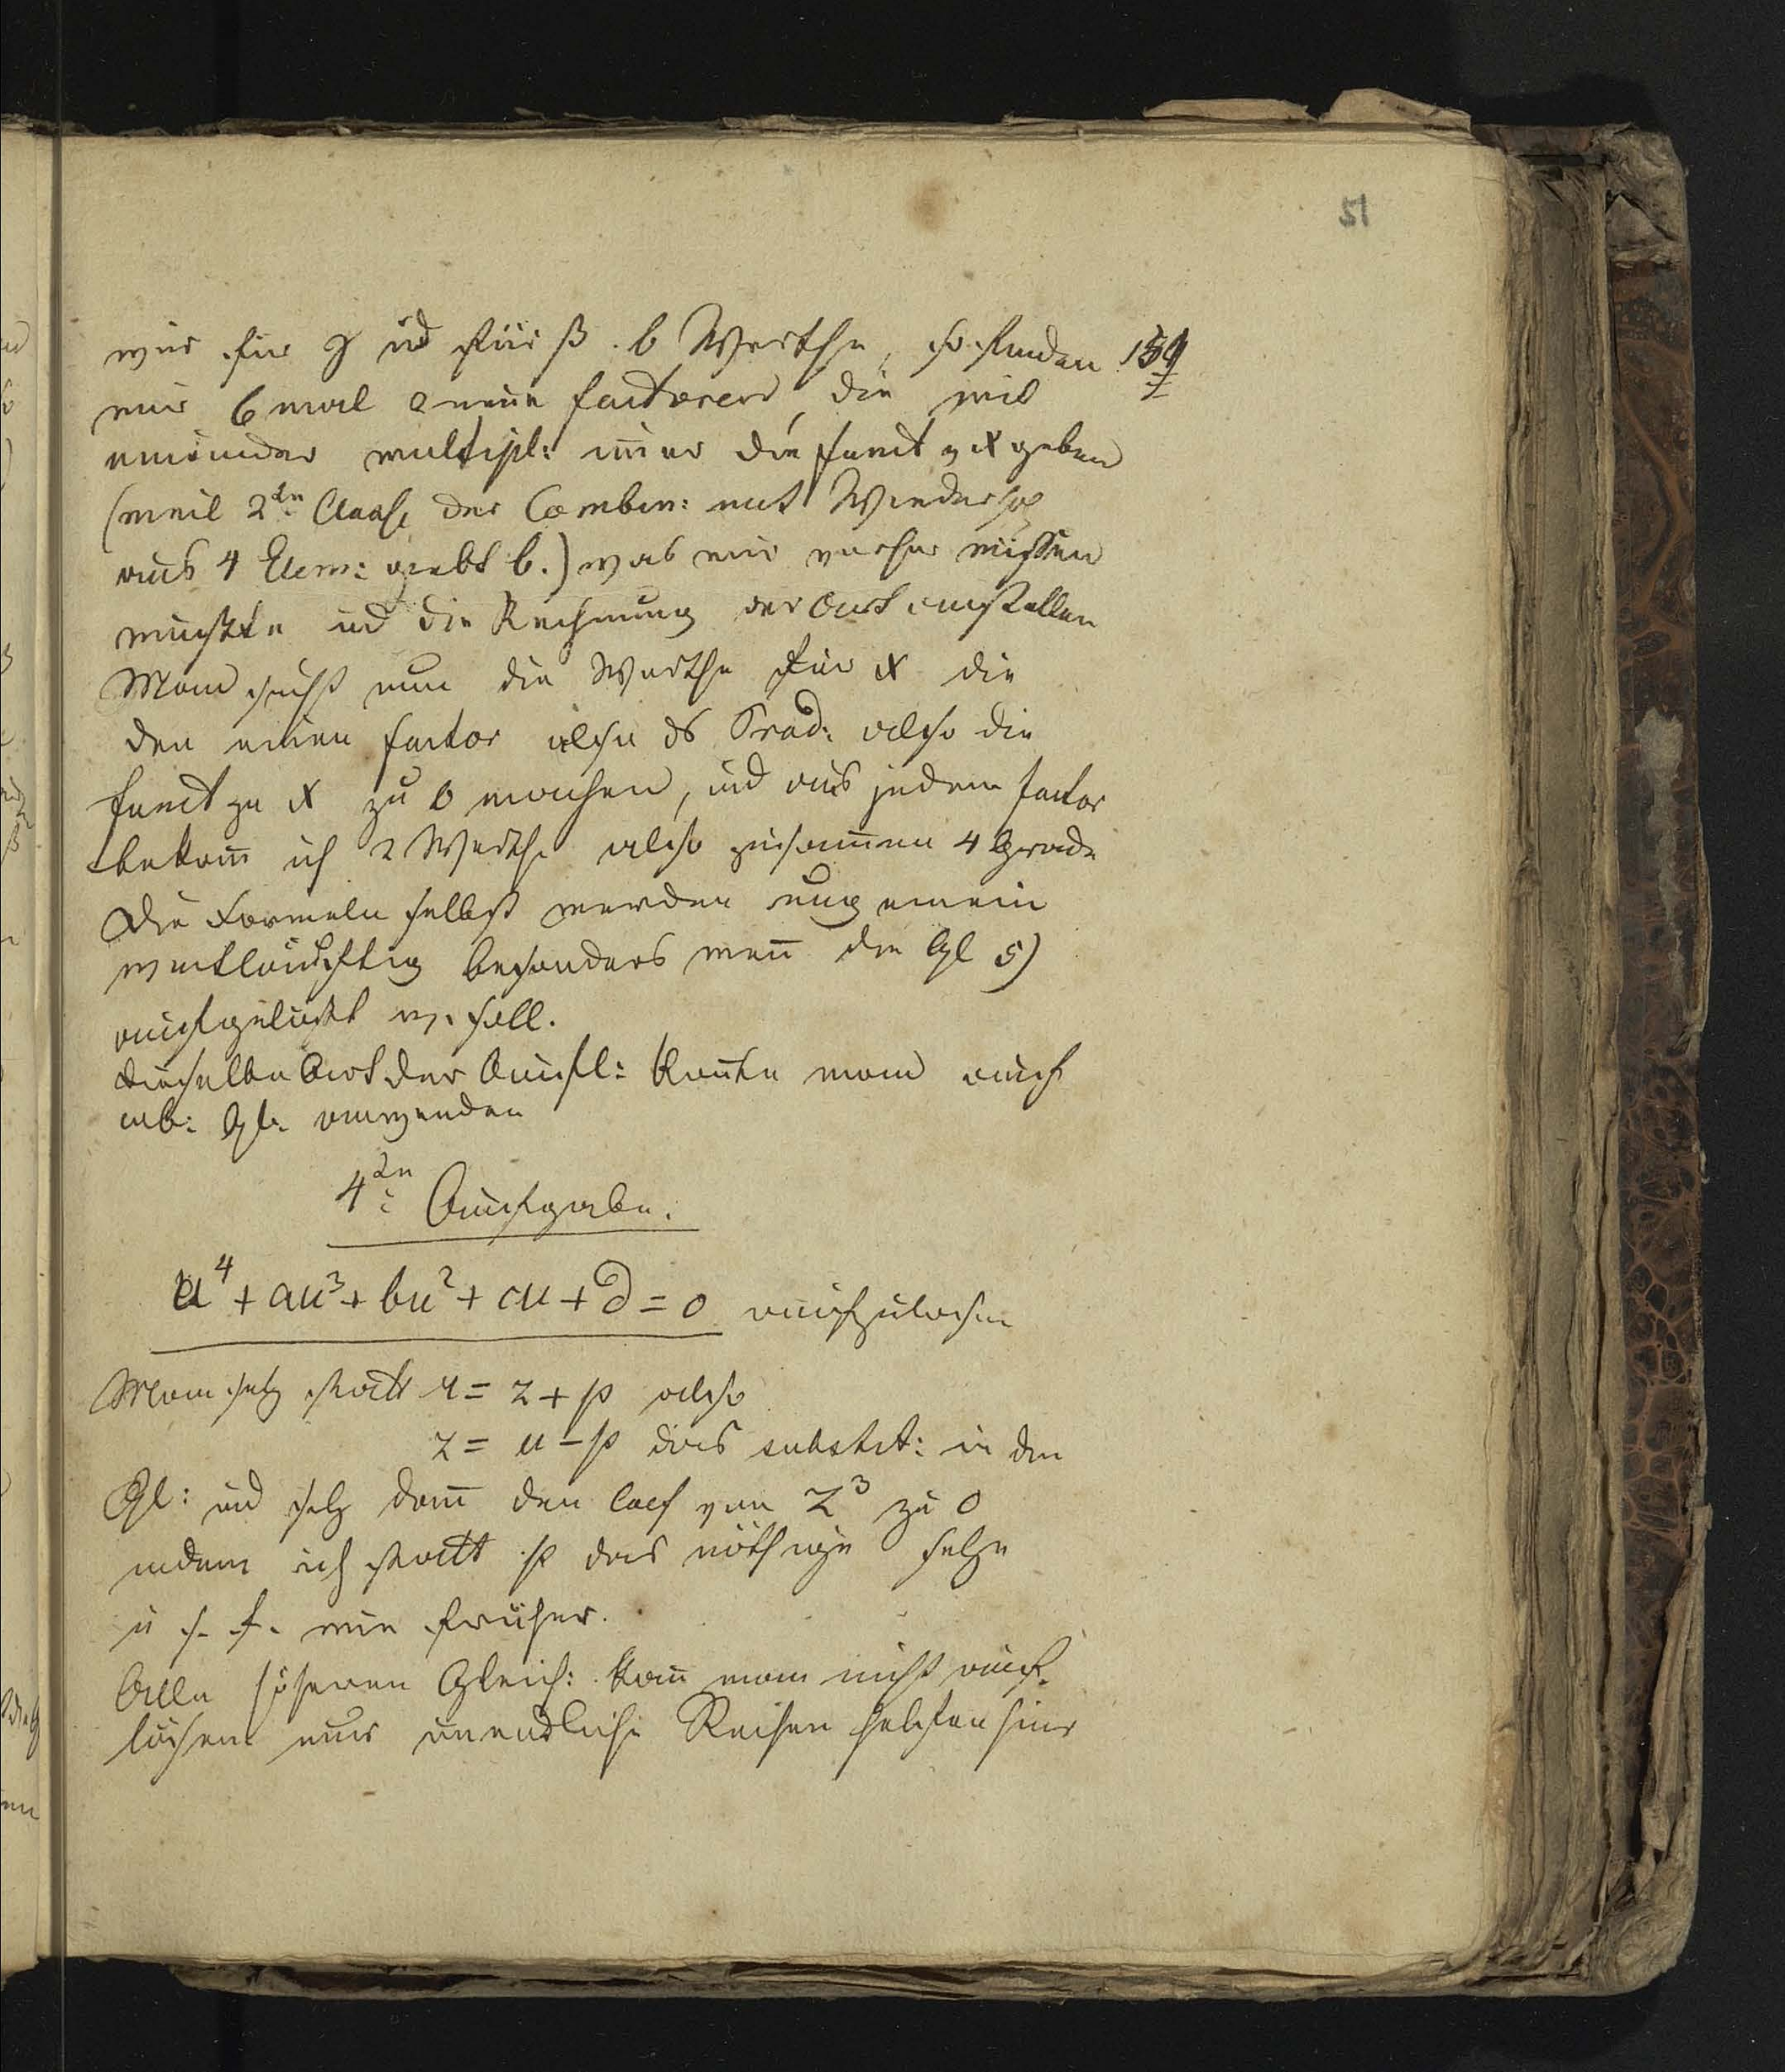 51
wir für g und für β. 6 Werthe, so finden 159
wir 6 mal 2 neue factoren, die mit
einander multipl: im̅er die funct v x geben
(weil 2te Classe der Combin: mit Wiederh
aus 4 Elem: giebt 6.) was wir vorher wissen
mußte und die Rechnung der Art anstellen
Man sucht nun die Werthe für x die
den einen factor also d Grad: also die
funct zu x zu 0 machen, und aus jedem factor
bekom̅ ich 2 Werthe also zusam̅en 4 Grade
Die Formeln selbst werden ungemein
weitläuftig besonders wen̅ die Gl 5)
aufgelößt w. soll.
dieselbe Art der Aufl: kön̅te man auch
cub: Gl. anwenden
4te Aufgabe.
u⁴ + au³ + bu² + cu + d = 0 aufzulösen
Man setz statt u = z + p also
z = u − p dies substit: in der
Gl: und setz dan̅ den Coef von z³ zu 0
indem ich statt p das nöthige setze
u s. f. wie früher.
Alle höheren Gleich: kan̅ man nicht auf-
lösen nur unendliche Reihen helfen hier